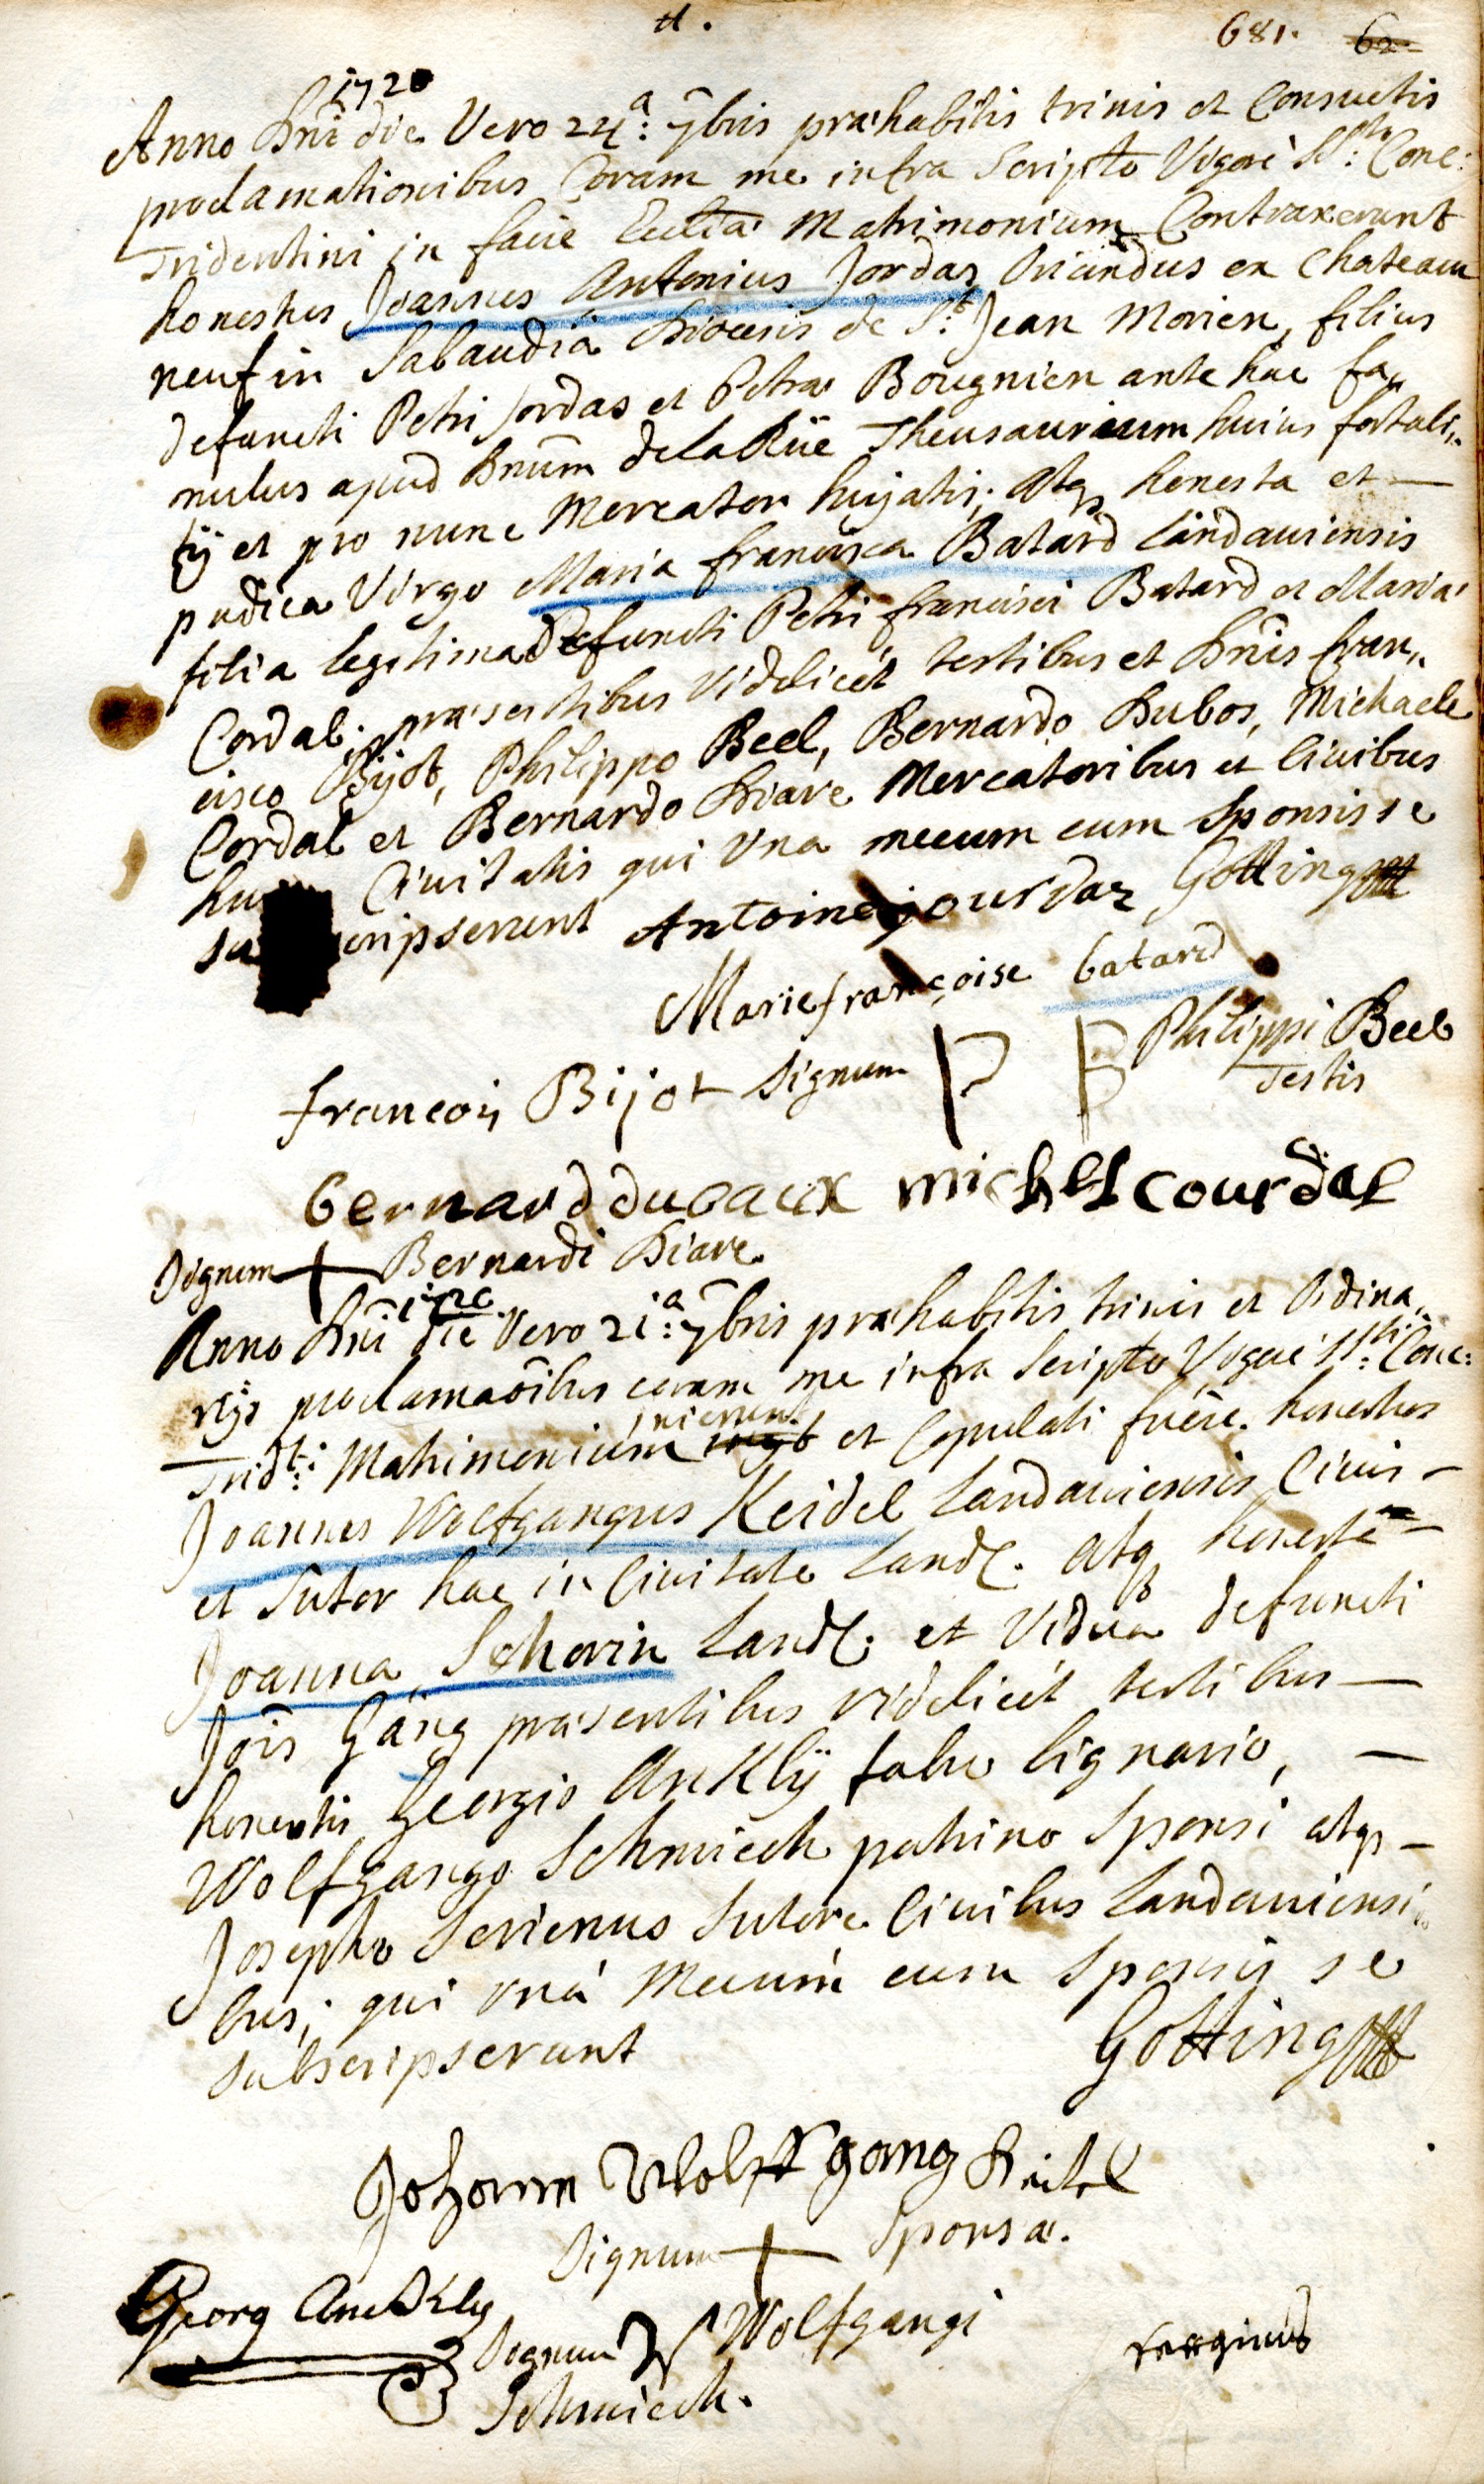 681. 62
1720
Anno Dni die Vero 24.a 7bris praehabitis trinis et Consuetis
proclamationibus Coram me infra Scripto Vigore Sti: Conc:
Tridentini in facie Eccliae Matrimonium Contraxerunt
honestus Joannes Antonius Jordas Oriundus ex Chateau
neuf in Sabaudia Dioecesis de St Jean Morien, filius
defuncti Petri Jordas et Petrae Bougnien ante hac fa„
mulus apud Dnum de la Rüe Thesaurarium huius fortali„
tij et pro nunc Mercator hujatis; atq honesta et —
pudica Virgo Maria francisca Batard Landauiensis
filia legitima Defuncti Petri francisci Batard et Maria
Cordal; praesentibus Videlicet testibus et Dnis fran„
cisco Bijot, Philippo Beel, Bernardo Dubos, Michaele
Cordal et Bernardo Diare Mercatoribus et Ciuibus
hu Ciuitatis qui Vna mecum cum Sponsis se
su cripserunt Antoine jourdaz Gotting
Marie françoise batard
Philippi Beel
françois Bijot Signum P B Testis
bernard dubaux michel courdal
Signum + Bernardi Diare
Anno Dni die Vero 21.a 7bris praehabitis trinis et Ordina„
rijs proclamaoibus coram me infra Scripto Vigore Sti: Conc:
Tridt: Matrimonium inierunt et Copulati fuere honestus
Joannes Wolfgangus Keidel Landauiensis Ciuis —
et Sutor hac in Ciuitate Land. atq honesta —
Joanna Schorin Land. et Vidua defuncti
Jois Gäng praesentibus videlicet testibus —
honestis Georgio Anckly fabro lignario, —
Wolfgango Schmiech patrino Sponsi atq —
Josepho Serienus Sutore Ciuibus Landauiensi„
bus; qui vna Mecum cum Sponsis se
subscripserunt Gotting
Johann Wolffgang Keitel
Signum + Sponsae.
Georg Anckly
Signum W Wolfgangi
Schmiech.